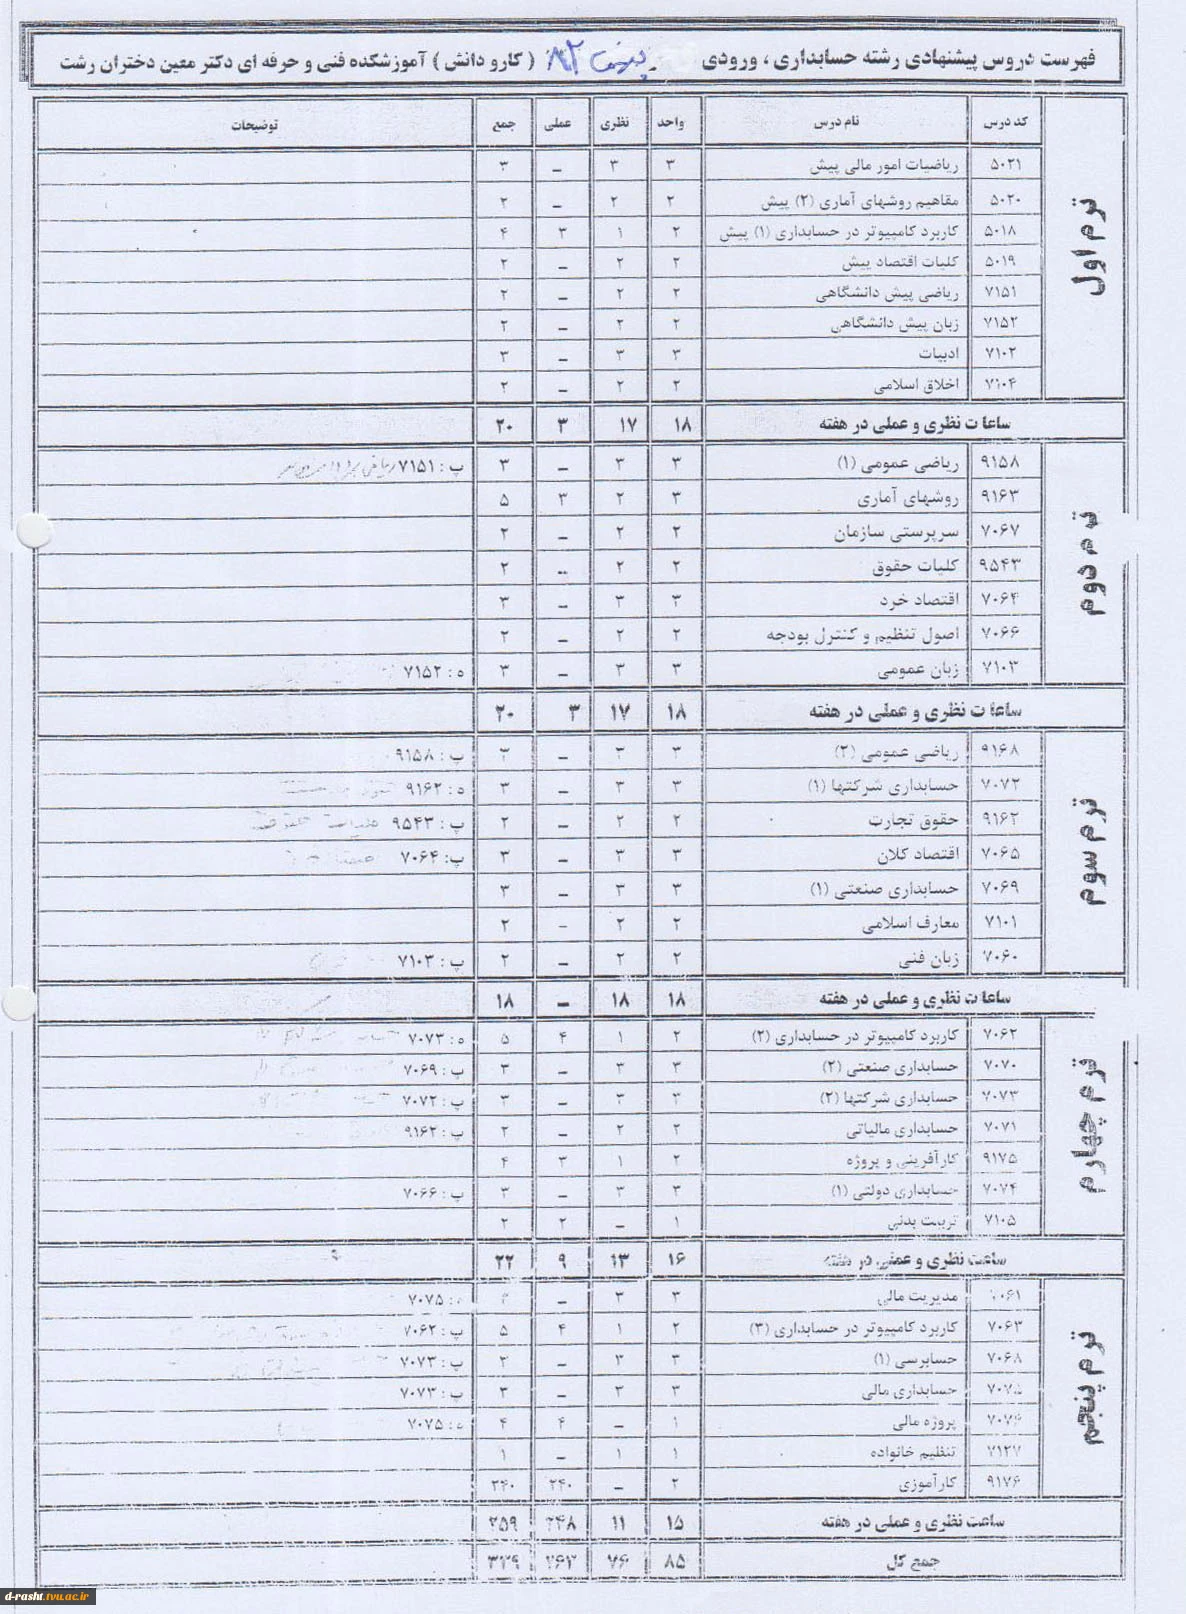 فهرست دروس پیشنهادی رشته حسابداری ، ورودی ۸۲ ( کارو دانش ) آموزشکده فنی و حرفه ای دکتر معین دختران رشت
کد درس نام درس واحد نظری عملی جمع توضیحات
ترم اول
۵۰۲۱ ریاضیات امور مالی پیش ۳ ۳ – ۳
۵۰۲۰ مقاهیم روشهای آماری (۲) پیش ۲ ۲ – ۲
۵۰۱۸ کاربرد کامپیوتر در حسابداری (۱) پیش ۲ ۱ ۳ ۴
۵۰۱۹ کلیات اقتصاد پیش ۲ ۲ – ۲
۷۱۵۱ ریاضی پیش دانشگاهی ۲ ۲ – ۲
۷۱۵۲ زبان پیش دانشگاهی ۲ ۲ – ۲
۷۱۰۲ ادبیات ۳ ۳ – ۳
۷۱۰۴ اخلاق اسلامی ۲ ۲ – ۲
ساعات نظری و عملی در هفته ۱۸ ۱۷ ۳ ۲۰
ترم دوم
۹۱۵۸ ریاضی عمومی (۱) ۳ ۳ – ۳ پ : ۷۱۵۱
۹۱۶۳ روشهای آماری ۳ ۲ ۳ ۵
۷۰۶۷ سرپرستی سازمان ۲ ۲ – ۲
۹۵۴۳ کلیات حقوق ۲ ۲ – ۲
۷۰۶۴ اقتصاد خرد ۳ ۳ – ۳
۷۰۶۶ اصول تنظیم و کنترل بودجه ۲ ۲ – ۲
۷۱۰۳ زبان عمومی ۳ ۳ – ۳ ه : ۷۱۵۲
ساعات نظری و عملی در هفته ۱۸ ۱۷ ۳ ۲۰
ترم سوم
۹۱۶۸ ریاضی عمومی (۲) ۳ ۳ – ۳ پ : ۹۱۵۸
۷۰۷۲ حسابداری شرکتها (۱) ۳ ۳ – ۳ ه : ۹۱۶۲
۹۱۶۲ حقوق تجارت ۲ ۲ – ۲ پ : ۹۵۴۳
۷۰۶۵ اقتصاد کلان ۳ ۳ – ۳ پ: ۷۰۶۴
۷۰۶۹ حسابداری صنعتی (۱) ۳ ۳ – ۳
۷۱۰۱ معارف اسلامی ۲ ۲ – ۲
۷۰۶۰ زبان فنی ۲ ۲ – ۲ پ : ۷۱۰۳
ساعات نظری و عملی در هفته ۱۸ ۱۸ – ۱۸
ترم چهارم
۷۰۶۲ کاربرد کامپیوتر در حسابداری (۲) ۲ ۱ ۴ ۵ ه : ۷۰۷۳
۷۰۷۰ حسابداری صنعتی (۲) ۳ ۳ – ۳ پ : ۷۰۶۹
۷۰۷۳ حسابداری شرکتها (۲) ۳ ۳ – ۳ پ : ۷۰۷۲
۷۰۷۱ حسابداری مالیاتی ۲ ۲ – ۲ پ : ۹۱۶۲
۹۱۷۵ کارآفرینی و پروژه ۲ ۱ ۳ ۴
۷۰۷۴ حسابداری دولتی (۱) ۳ ۳ – ۳ پ : ۷۰۶۶
۷۱۰۵ تربیت بدنی ۱ – ۲ ۲
ساعت نظری و عملی در هفته ۱۶ ۱۳ ۹ ۲۲
ترم پنجم
۷۰۶۱ مدیریت مالی ۳ ۳ – ۳ ه : ۷۰۷۵
۷۰۶۳ کاربرد کامپیوتر در حسابداری (۳) ۲ ۱ ۴ ۵ پ : ۷۰۶۲
۷۰۶۸ حسابرسی (۱) ۳ ۳ – ۳ پ : ۷۰۷۳
۷۰۷۵ حسابداری مالی ۳ ۳ – ۳ پ : ۷۰۷۳
۷۰۷۶ پروژه مالی ۱ – ۴ ۴ ه : ۷۰۷۵
۷۱۲۷ تنظیم خانواده ۱ ۱ – ۱
۹۱۷۶ کارآموزی ۲ – ۲۴۰ ۲۴۰
ساعت نظری و عملی در هفته ۱۵ ۱۱ ۲۴۸ ۲۵۹
جمع کل ۸۵ ۷۶ ۲۶۳ ۳۳۹
d-rasht.tvu.ac.ir